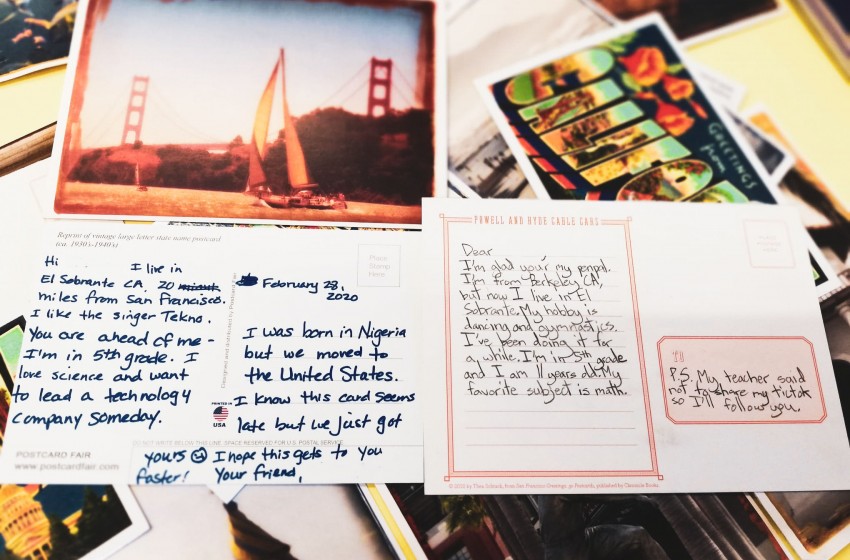 GREETINGS
from
Reprint of vintage large-letter state name postcard
(ca. 1930's-1940's)
Place
Stamp
Here
Hi
I live in
El Sobrante CA, 20
miles from San Francisco.
I like the singer Tekno.
You are ahead of me -
I'm in 5th grade. I
love science and want
to lead a technology
company someday.
POSTCARD FAIR
www.postcardfair.com
Designed and distributed by Postcard Fair
PRINTED IN
USA
February 28,
2020
I was born in Nigeria
but we moved to
the United States.
I know this card seems
late but we just got
DO NOT WRITE BELOW THIS LINE. SPACE RESERVED FOR U.S. POSTAL SERVICE.
yours I hope this gets to you
faster! Your friend,
POWELL AND HYDE CABLE CARS
Dear
I'm glad your my penpal.
I'm from Berkeley CA,
but now I live in El
Sobrante. My hobby is
dancing and gymnastics.
I've been doing it for
a while. I'm in 5th grade
and I am 11 years old. My
favorite subject is math.
TO
P.S. My teacher said
not to share my tiktok
so I'll follow you.